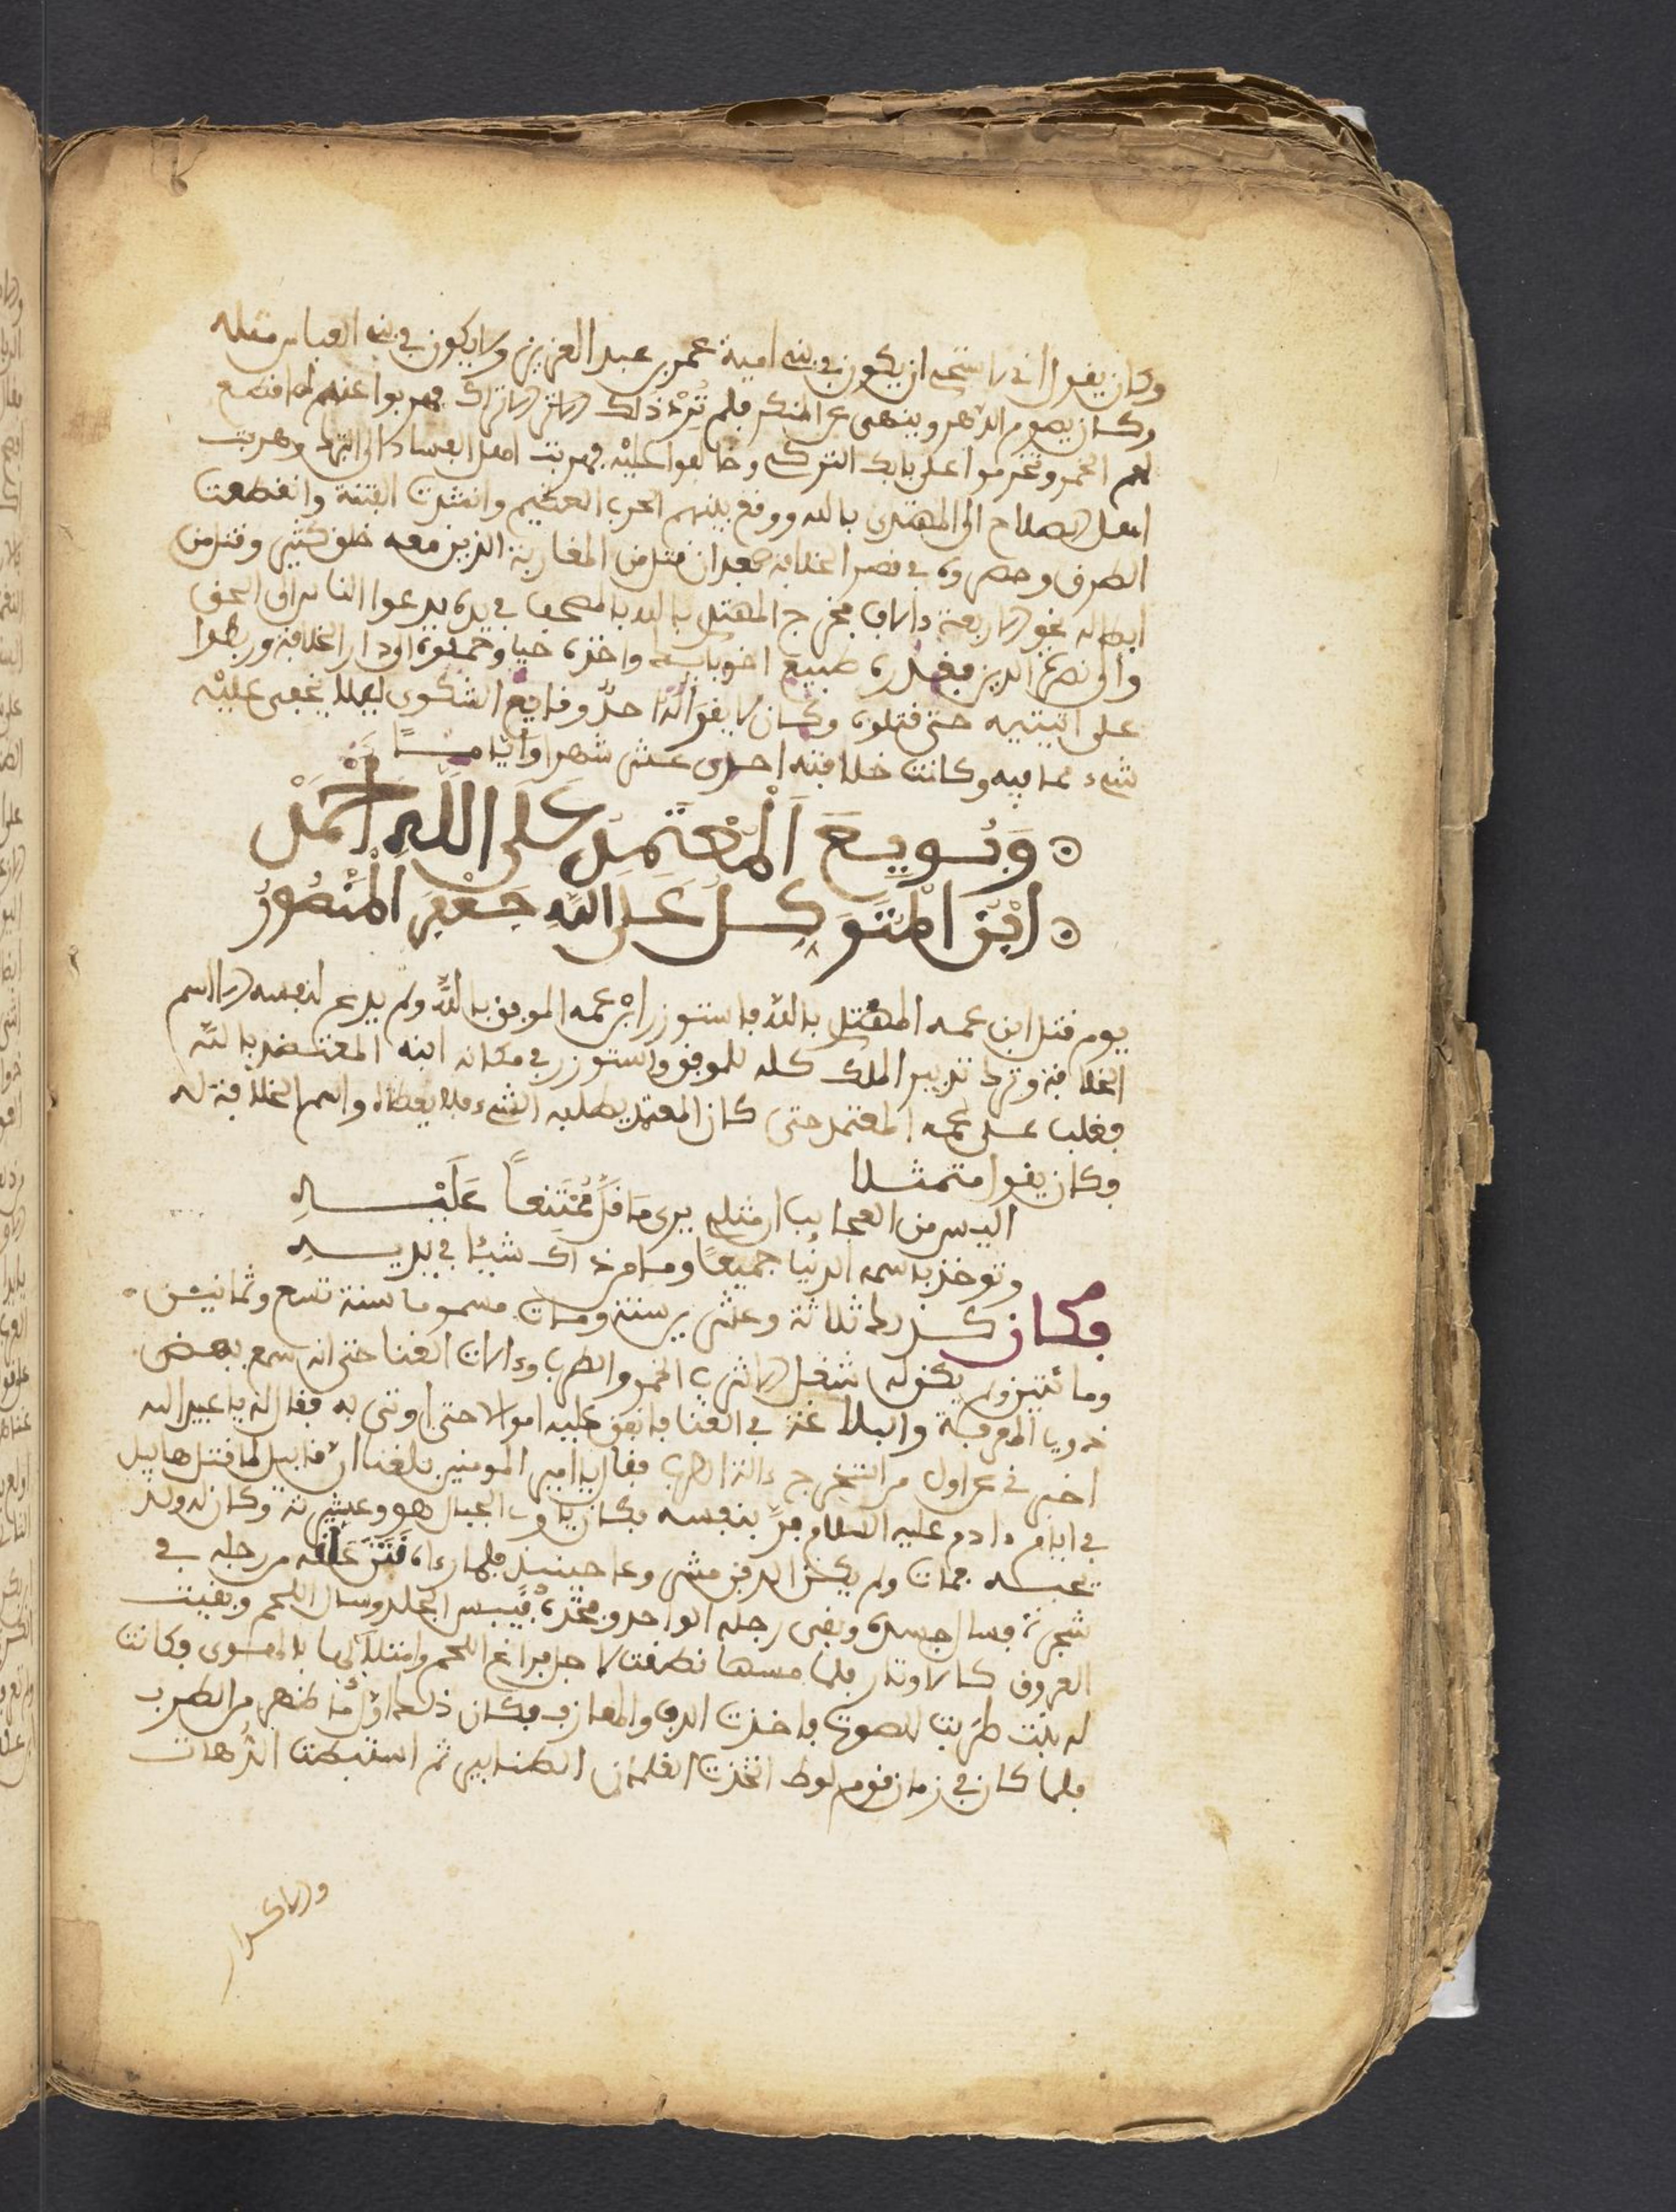 وكان يقول اني لاستحي ان يكون في بني امية عمر بن عبد العزيز ولا يكون في بني العباس مثله
وكان يصوم الدهر وينهى عن المنكر فلم تُرْد ذلك الاتراك فهربوا عنه لما منع
لهم الخمر وتحزموا على بابك التركي وخالفوا عليْه فهربت اهل الفساد الى الترك وهربت
اهل الصلاح الى المهتدي بالله ووقع بينهم الحرب العظيم وانتشرت الفتنة وانقطعت
الطرق وحصروه في قصر الخلافة بعد ان قتل من المغاربة الذين معه خلق كثير وقتل من
ابطاله نحو الاربعة ءالاف فخرج المهتدي بالله بالمصحف في يده يدعوا الناس الى الحق
والى نصرة الدين فغدره طبيع اخو بابك واخذه حيا وحملوه الى دار الخلافة وربطوا
على انثييه حتى قتلوه وكان لا يقوم احدٌ وقايع الشكوى ليلا يخفى عليْه
شيء مما فيه وكانت خلافته احدى عشر شهرا وايّامـــا
وَبُـويِـعَ اَلْمُعْتَمِدِ عَلَى اللَّهِ أَحْمَدْ
اِبْنِ اَلْمُتَوَكِّـلُ عَلى اللّهِ جَـعْفَرِ اَلْمَنْصُورُ
يوم قتل ابن عمه المهتدي بالله فاستوزر ابن عمه الموفق بالله ولم يدع لنفسه الا اسم
الخلافة وترك تدبير الملك كله للموفق واستوزر في مكانه ابنه المعتضد بالله
فغلب على عمه المعتمد حتى كان المعتمد يطلبه الشيء فلا يعطاه واسم الخلافة له
وكان يقول متمثلا
اليس من العجايب ان مثلي يرى مَا قَلَّ مُمْتَنِعاً عَلَيْـــهِ
وتوخذ باسمه الدنْيا جميعًا وما من ذاك شيئا في يديـــهِ
فكان كذلك ثلاثة وعشرين سنة ومات مسموما سنة تسع وثمانين
ومائتين ولم يكن له شغل الا شرب الخمر والطرب وءالات الغنا حتى انه سمع ببعض
ذوي المعرفة والبلاغة في الغنا فانفق عليه اموالا حتى اوتي به فقال له يا عبيد الله
اخبرني عن اول من استخرج ءالة الطرب فقال يا امير المومنين بلغنا ان قابيل لما قتل هابيل
في ايام ءادم عليه السلام فرَّ بنفسه فكان ياوي الجبال هو وعشيرته وكان له ولد
يحبه فمات ولم يكن الدفن مشروعا حينيذ فلما رءاه نَتَنَ علقه من رجله في
شجرة فسال جسده وبقى رجله الواحد وفخذه فيبس الجلد وسال اللحم وبقيت
العروق كالاوتار فلما مسها نطقت لاجل فراغ اللحم وامتلايها بالهوى فكانت
له بنت طربت للصوت فاخذت الدف والمعازف فكان ذلك اوّل ما ظهر من الطرب
فلما كان في زمان قوم لوط اتخذت الغلمان الطنابير ثم استنبطت الرهات
والاكـراد